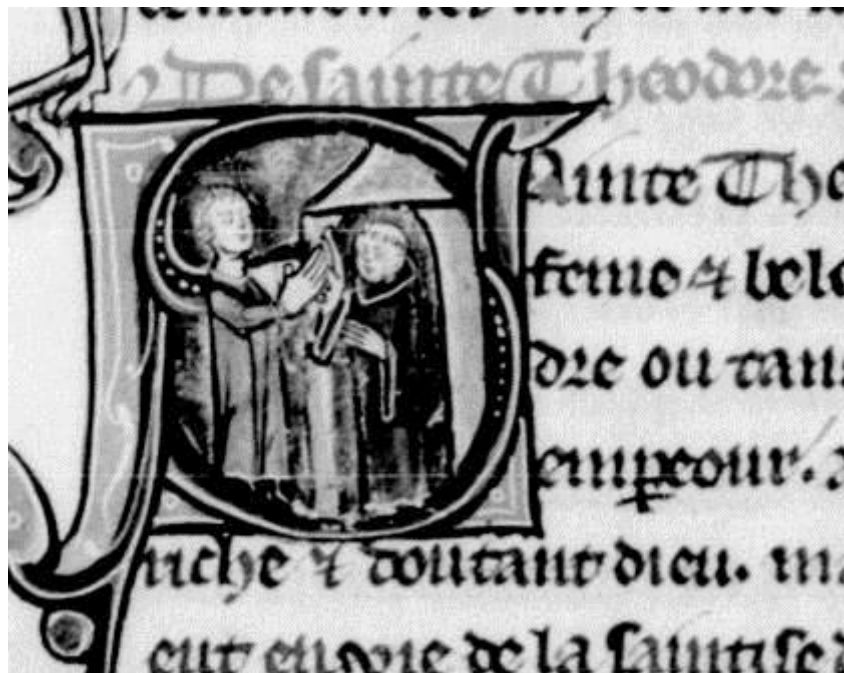 De sainte Theodore
Sainte The
feme & bele
dre ou tans
empeour.
riche & doutant dieu. ma
eut enuie de la saintise d